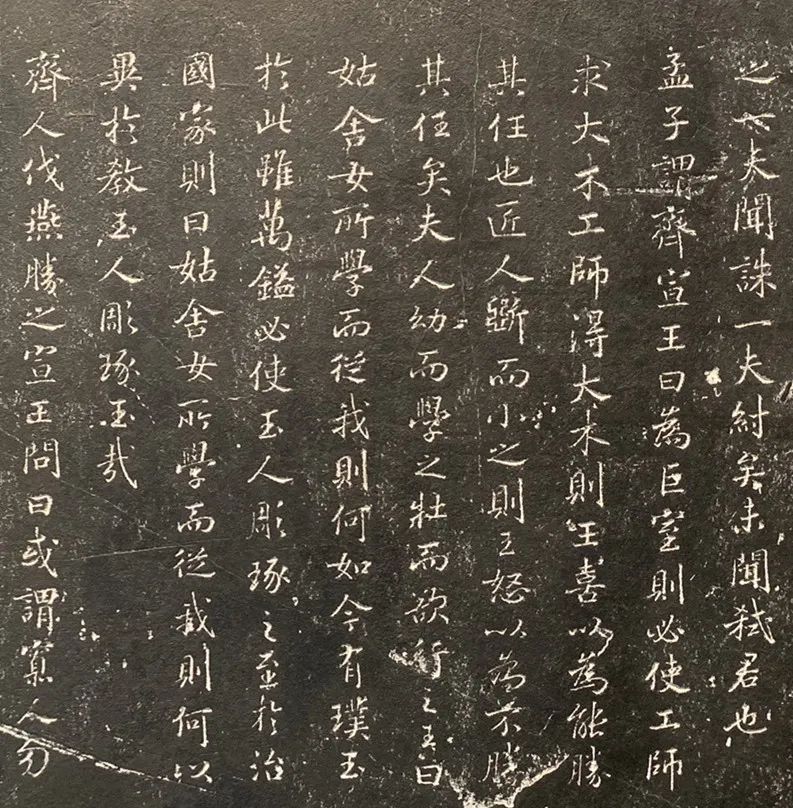 之一夫聞誅一夫紂矣未聞弒君也
孟子謂齊宣王曰為巨室則必使工師
求大木工師得大木則王喜以為能勝
其任也匠人斲而小之則王怒以為不勝
其任矣夫人幼而學之壯而欲行之王曰
姑舍女所學而從我則何如今有璞玉
於此雖萬鎰必使玉人彫琢之至於治
國家則曰姑舍女所學而從我則何以
異於教玉人彫琢玉哉
齊人伐燕勝之宣王問曰或謂寡人勿